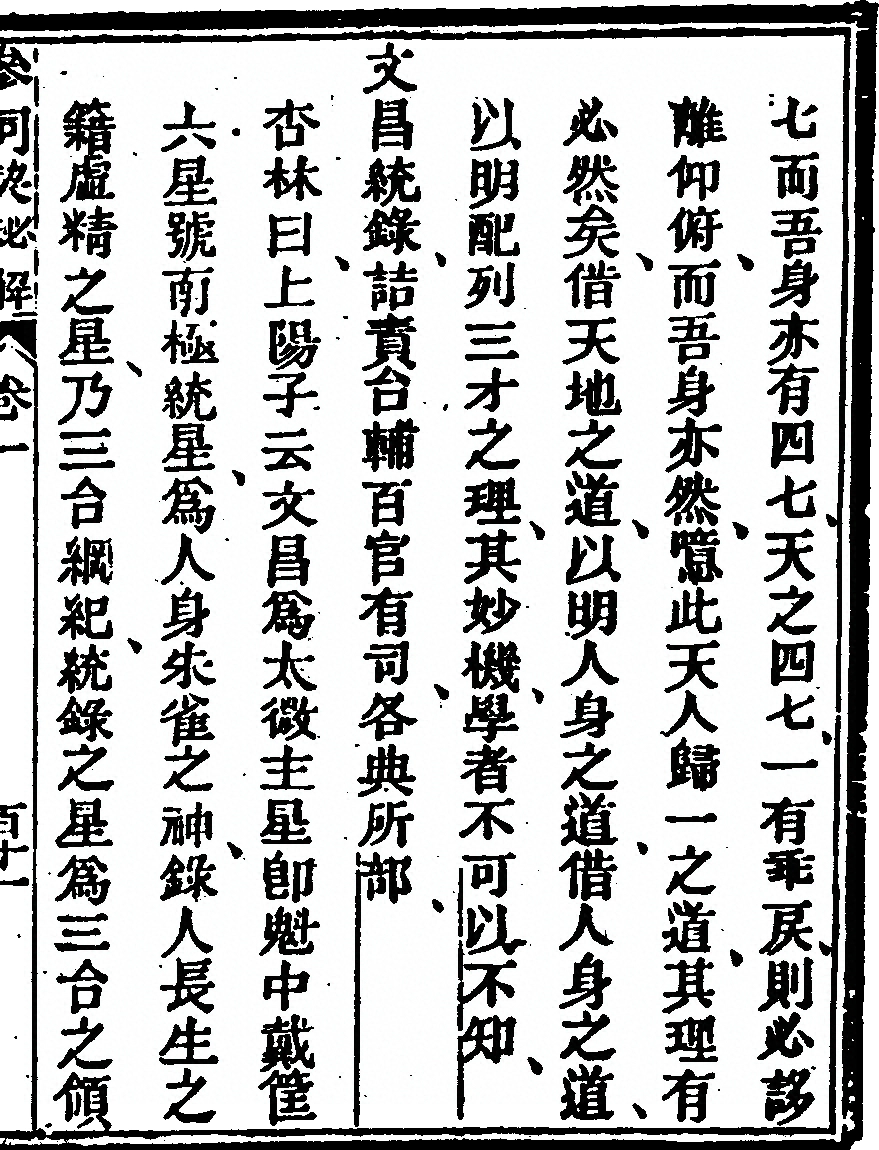 七而吾身亦有四七、天之四七、一有乖戾、則必誃
離仰俯、而吾身亦然、噫此天人歸一之道、其理有
必然矣、借天地之道、以明人身之道、借人身之道、
以明配列三才之理、其妙機、學者不可以不知、
文昌統錄、詰責台輔百官有司、各典所部、
杏林曰、上陽子云文昌爲太微主星卽魁中戴筐
六星號南極統星、爲人身朱雀之神、錄人長生之
籍虛精之星、乃三台綱紀、統錄之星爲三台之領
參同契秘解 卷一 百十一